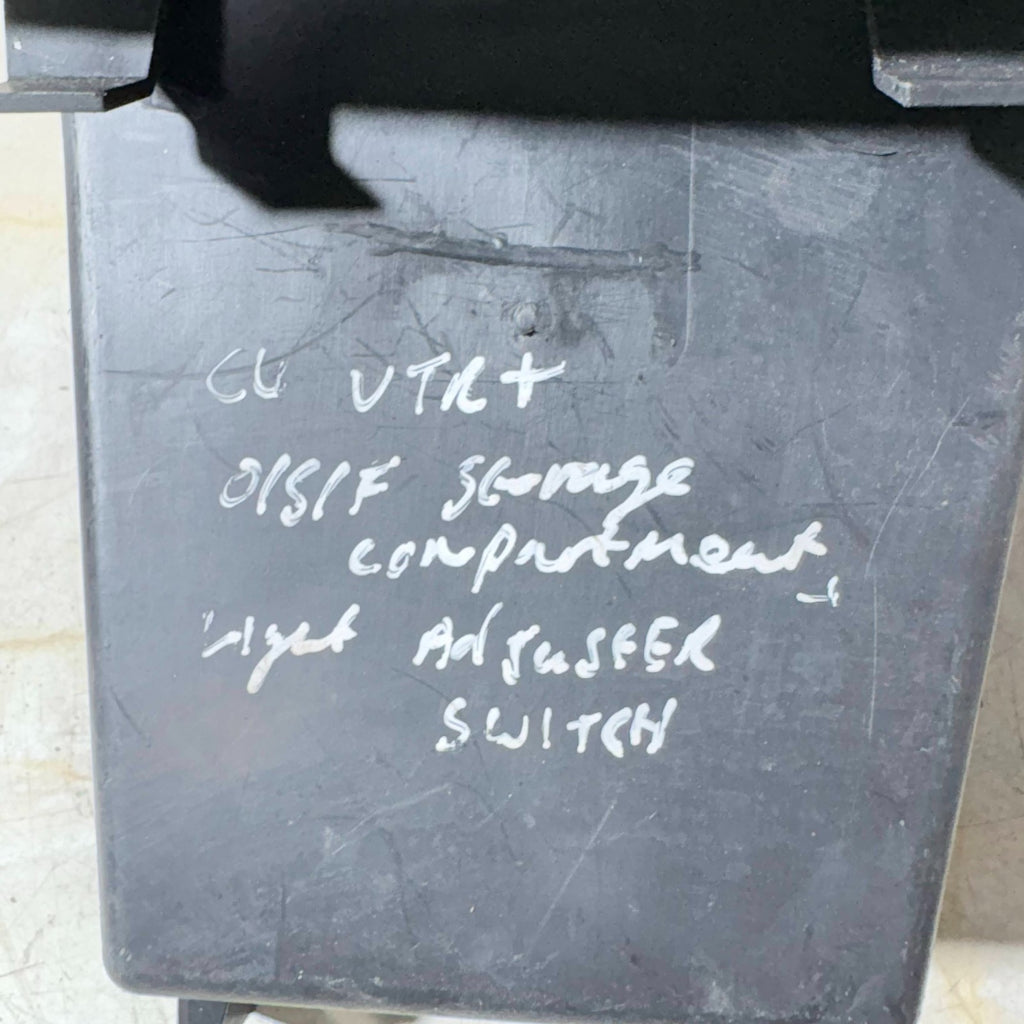 C4 VTR+
O/S/F Storage
compartment +
Light AdjusTER
SWITCH